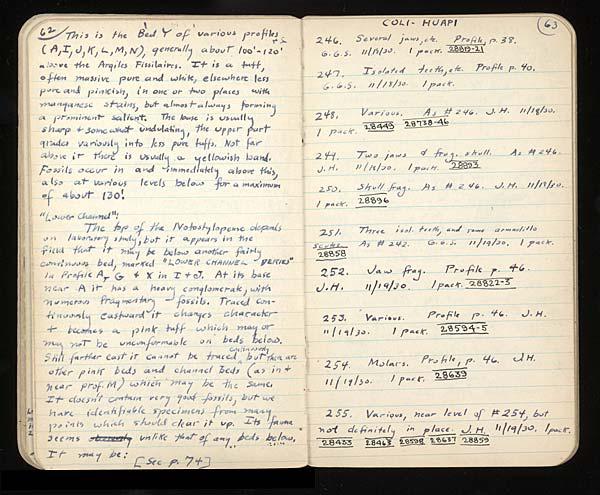 62
This is the Bed Y of various profiles
(A, I, J, K, L, M, N), generally about 100'-120'
above the Argiles Fissilaires. It is a tuff,
often massive pure and white, elsewhere less
pure and pinkish, in one or two places with
manganese stains, but almost always forming
a prominent salient. The base is usually
sharp & somewhat undulating, the upper part
grades variously into less pure tuffs. Not far
above it there is usually a yellowish band.
Fossils occur in and immediately above this,
also at various levels below for a maximum
of about 130!
"Lower Channel":
The top of the Notostylopense depends
on laboratory study, but it appears in the
field that it may be below another fairly
continuous bed, marked "LOWER CHANNEL SERIES"
in Profile A, G & X in I & J. At its base
near A it has a heavy conglomerate, with
numerous fragmentary fossils. Traced con-
tinuously eastward it changes character
& becomes a pink tuff which may or
may not be unconformable on beds below.
Still farther east it cannot be traced continuously, but there are
other pink beds and channel beds (as in &
near prof. M) which may be the same.
It doesn't contain very good fossils, but we
have identifiable specimens from many
points which should clear it up. Its fauna
seems unlike that of any beds below.
It may be:
[See p. 74]
COLI-HUAPI
63
246. Several jaws, etc. Profile, p. 38.
G.G.S. 11/18/30. 1 pack. 28819-21
247. Isolated teeth, etc. Profile p. 40.
G.G.S. 11/18/30. 1 pack.
248. Various. As #246. J.H. 11/19/30.
1 pack. 28449 28738-46
249. Two jaws & frag. skull. As #246.
J.H. 11/19/30. 1 pack. 28893
250. Skull frag. As #246. J.H. 11/19/30.
1 pack. 28896
251. Three isol. teeth, and some armadillo
scutes. As #242. G.G.S. 11/19/30. 1 pack.
28858
252. Jaw frag. Profile p. 46.
J.H. 11/19/30. 1 pack. 28822-3
253. Various. Profile p. 46. J.H.
11/19/30. 1 pack. 28594-5
254. Molars. Profile, p. 46. J.H.
11/19/30. 1 pack. 28639
255. Various, near level of #254, but
not definitely in place. J.H. 11/19/30. 1 pack.
28433 28463 28598 28637 28859